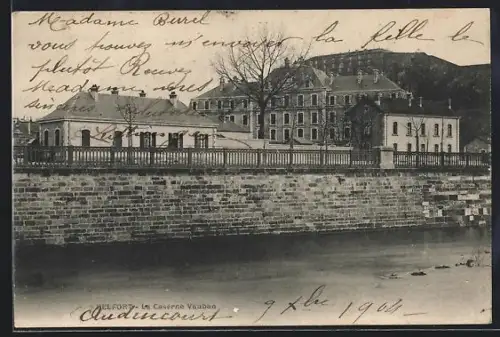 Madame Burel
vous trouvez m'envoyer la fille le
plutôt Rouvez
Madame
suis
BELFORT - La Caserne Vauban
Audincourt 9 Xbre 1904